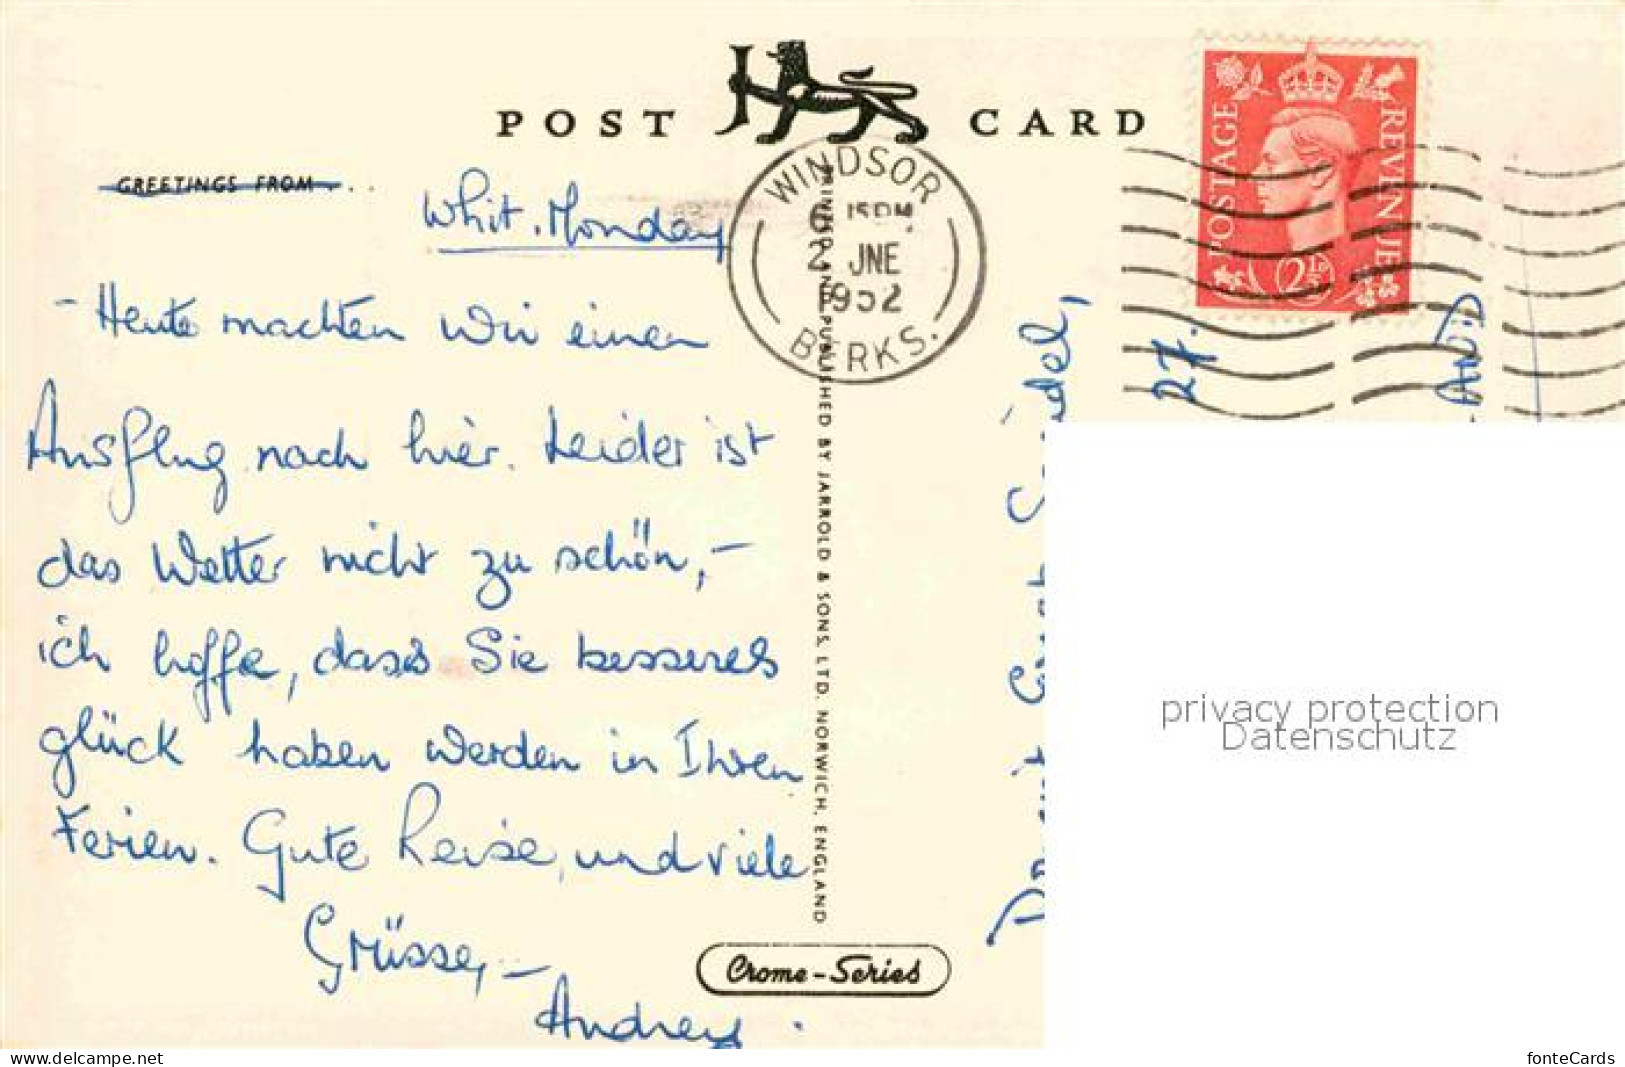 POST CARD
GREETINGS FROM
Whit. Monday
WINDSOR
6 15 PM
2 JNE
1952
BERKS.
POSTAGE REVENUE
2½D
- Heute machten wir einen
Ausflug nach hier. Leider ist
das Wetter nicht zu schön, -
ich hoffe, dass Sie besseres
glück haben werden in Ihren
Ferien. Gute Reise, und viele
Grüsse, -
PRINTED AND PUBLISHED BY JARROLD & SONS, LTD. NORWICH, ENGLAND
Crome-Series
27.
privacy protection
Datenschutz
https://www.delcampe.net
fonteCards